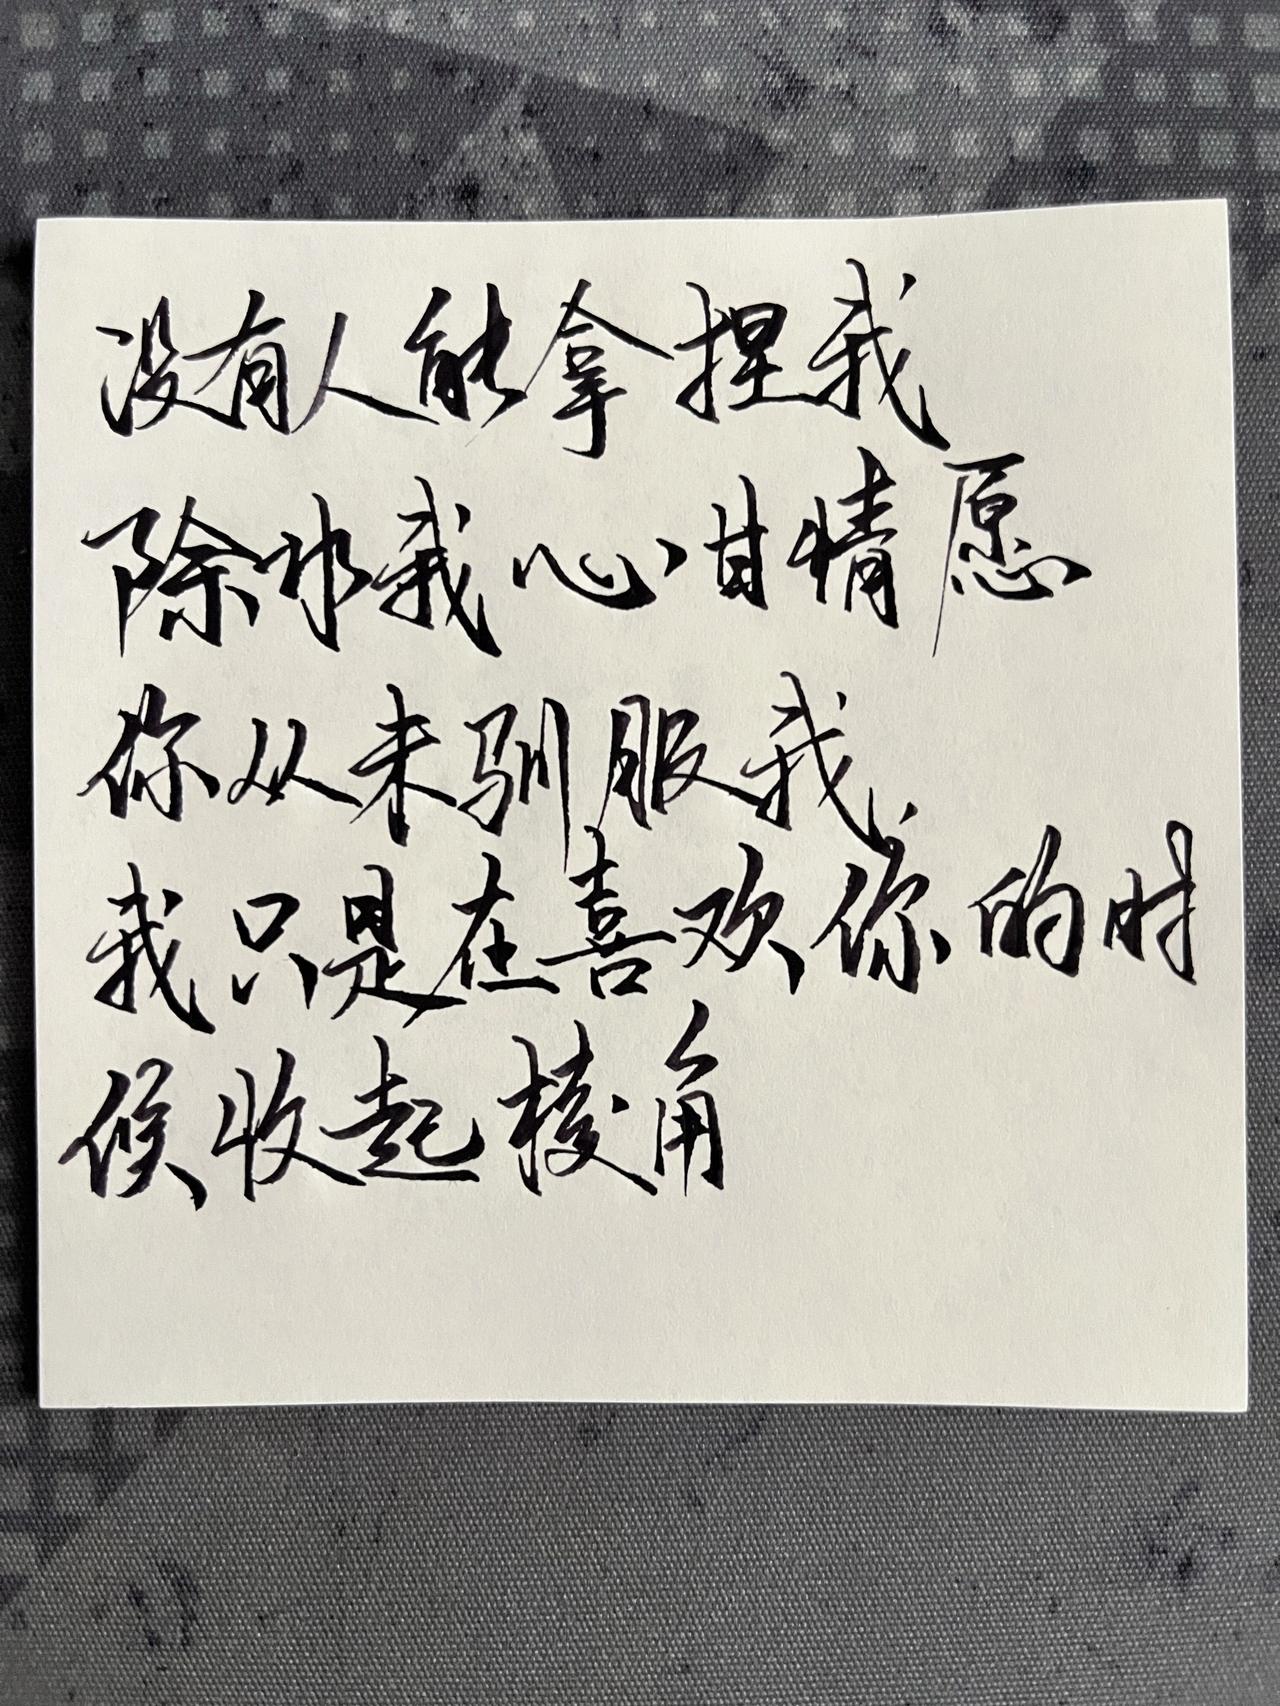 没有人能拿捏我
除非我心甘情愿
你从未驯服我
我只是在喜欢你的时
候收起棱角